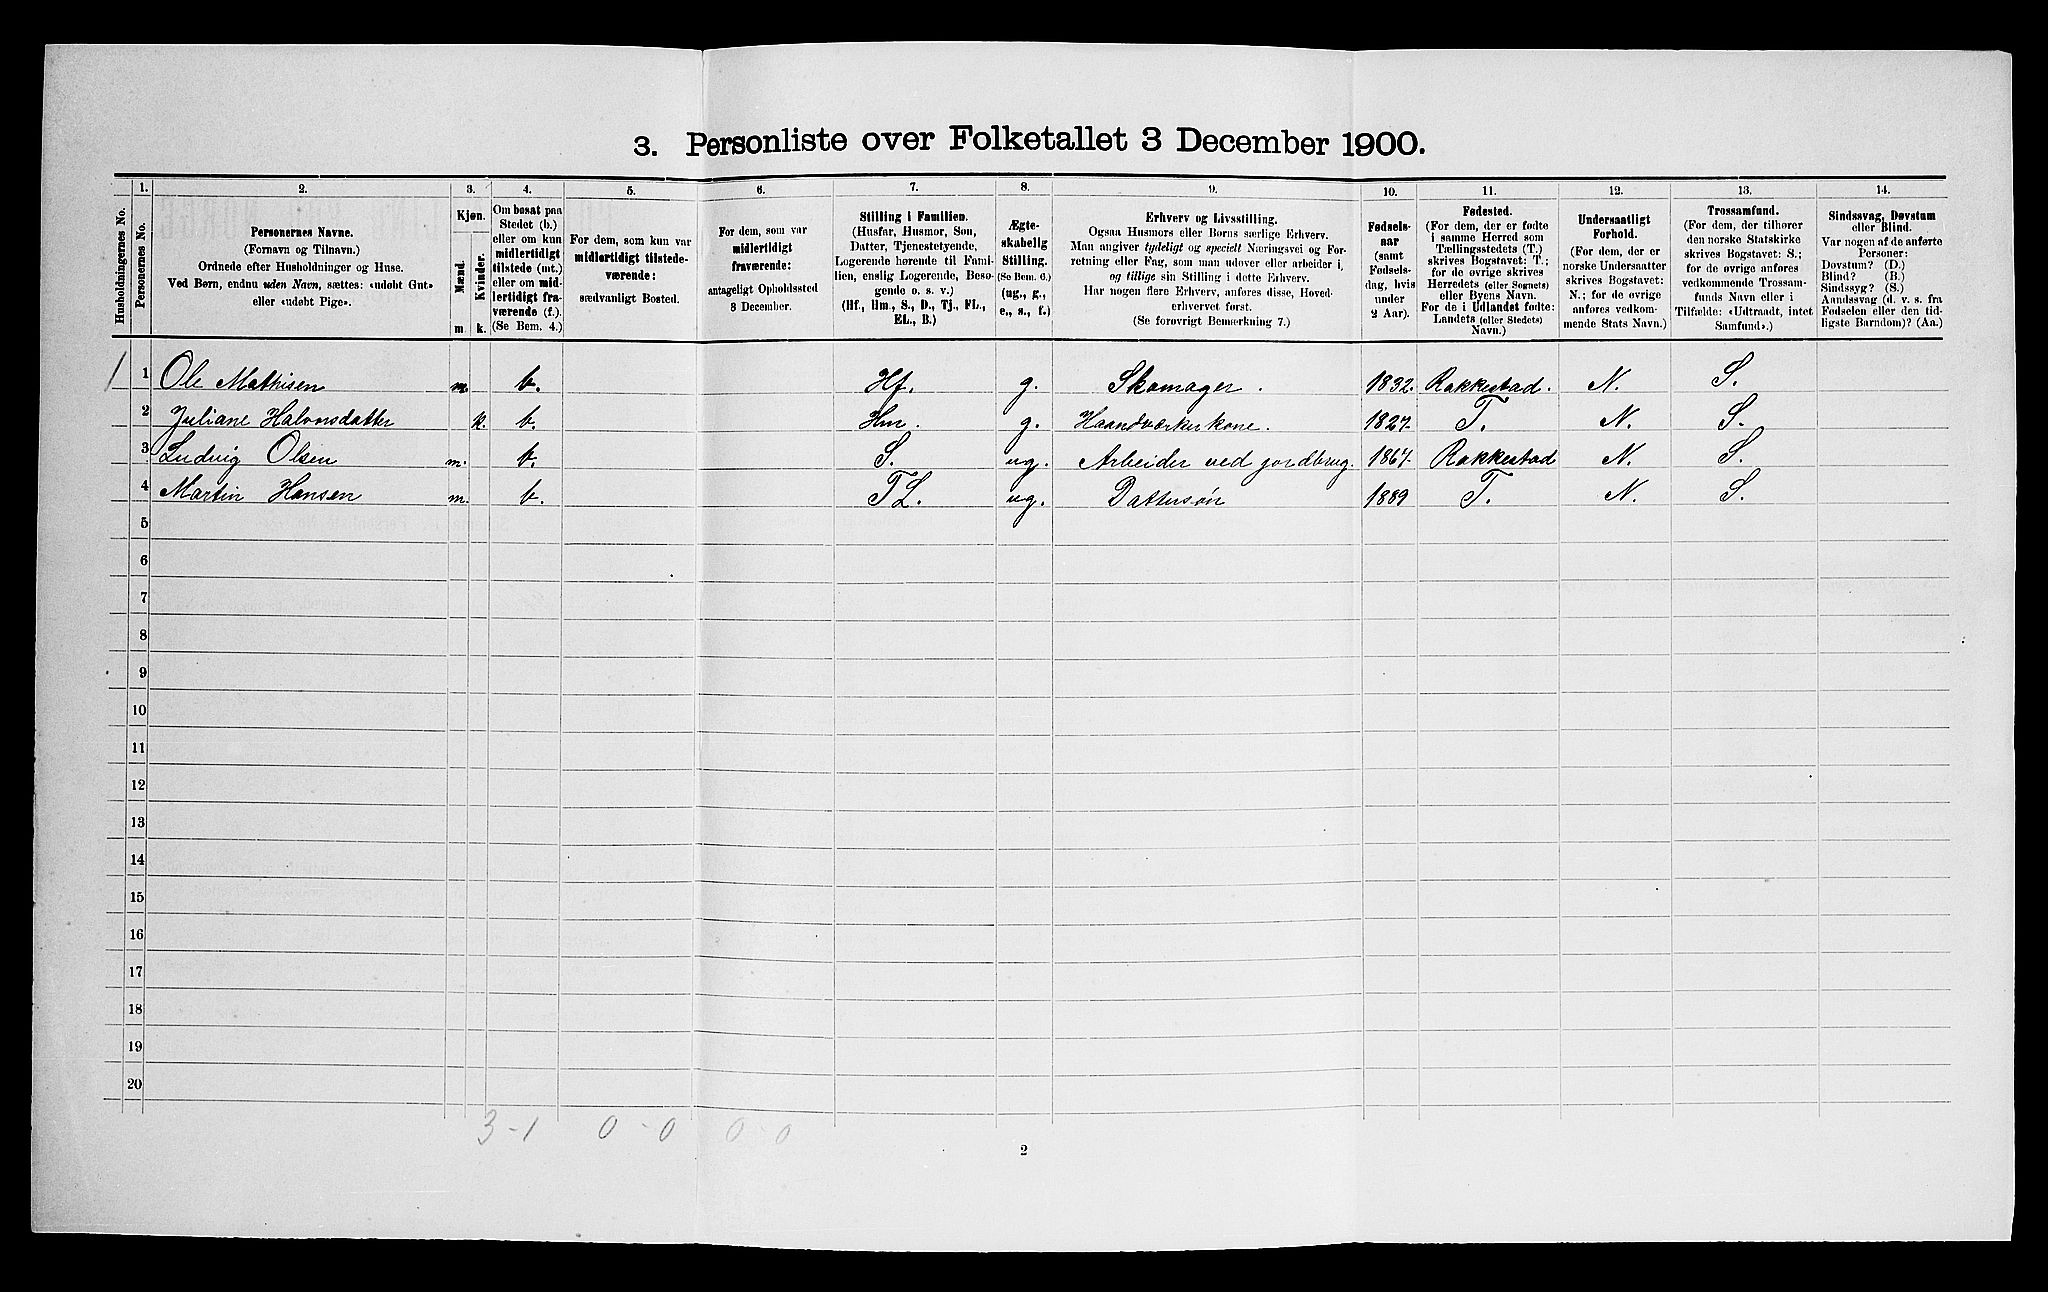 3. Personliste over Folketallet 3 December 1900.
1. 2. 3. 4. 5. 6. 7. 8. 9. 10. 11. 12. 13. 14.
Husholdningernes No.
Personernes No.
Personernes Navne.
(Fornavn og Tilnavn.)
Ordnede efter Husholdninger og Huse.
Ved Børn, endnu uden Navn, sættes: «udøbt Gut»
eller «udøbt Pige».
Kjøn.
Mænd.
Kvinder.
m. k.
Om bosat paa
Stedet (b.)
eller om kun
midlertidigt
tilstede (mt.)
eller om mid-
lertidigt fra-
værende (f.).
(Se Bem. 4.)
For dem, som kun var
midlertidigt tilstede-
værende:
sædvanligt Bosted.
For dem, som var
midlertidigt
fraværende:
antageligt Opholdssted
3 December.
Stilling i Familien.
(Husfar, Husmor, Søn,
Datter, Tjenestetyende,
Logerende hørende til Fami-
lien, enslig Logerende, Beso-
gende o. s. v.)
(Hf., Hm., S., D., Tj., FL.,
EL., B.)
Ægte-
skabelig
Stilling.
(Se Bem. 6.)
(ug., g.,
e., s., f.)
Erhverv og Livsstilling.
Ogsaa Husmors eller Børns særlige Erhverv.
Man angiver tydeligt og specielt Næringsvei og For-
retning eller Fag, som man udover eller arbeider i,
og tillige sin Stilling i dette Erhverv.
Har nogen flere Erhverv, anføres disse, Hoved-
erhvervet først.
(Se forøvrigt Bemærkning 7.)
Fødsels-
aar
(samt
Fødsels-
dag, hvis
under
2 Aar).
Fødested.
(For dem, der er fødte
i samme Herred som
Tællingsstedets (T.)
skrives Bogstavet: T.;
for de øvrige skrives
Herredets (eller Sognets)
eller Byens Navn.
For de i Udlandet fødte:
Landets (eller Stedets)
Navn.)
Undersaatligt
Forhold.
(For dem, der er
norske Undersaatter
skrives Bogstavet:
N.; for de øvrige
anføres vedkom-
mende Stats Navn.)
Trossamfund.
(For dem, der tilhører
den norske Statskirke
skrives Bogstavet: S.;
for de øvrige anføres
vedkommende Trossam-
funds Navn eller i
Tilfælde: «Udtraadt, intet
Samfund».)
Sindssvag, Døvstum
eller Blind.
Var nogen af de anførte
Personer:
Døvstum? (D.)
Blind? (B.)
Sindssyg? (S.)
Aandssvag (d. v. s. fra
Fødselen eller den tid-
ligste Barndom)? (Aa.)
1 1 Ole Mathisen m. b. Hf. g. Skomager. 1832. Rakkestad. N. S.
2 Juliane Halvorsdatter k. b. Hm. g. Haandværkerkone. 1827. T. N. S.
3 Ludvig Olsen m. b. S. ug. Arbeider ved jordbrug. 1867. Rakkestad N. S.
4 Martin Hansen m. b. FL. ug. Dattersøn 1889 T. N. S.
5
6
7
8
9
10
11
12
13
14
15
16
17
18
19
20
3-1 0-0 0-0
2